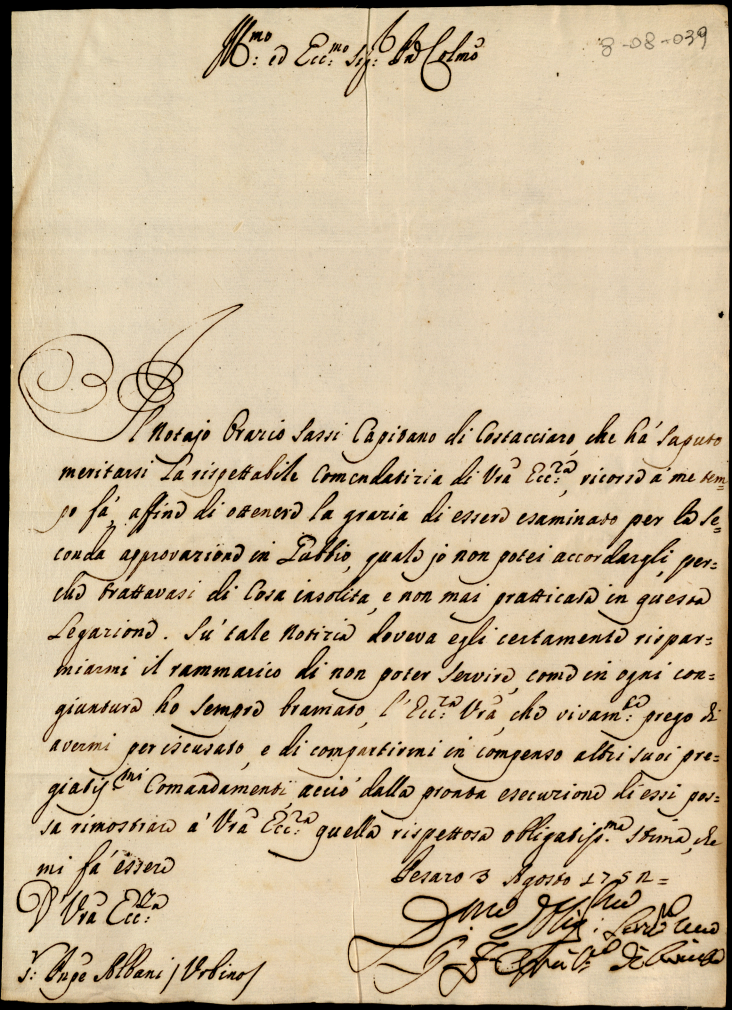 8-08-039
Ill.mo ed Ecc.mo Sig.r Pñ Colmo
Il Notajo Orazio Sassi Capitano di Costacciaro, che há saputo
meritarsi la rispettabile Comendatizia di Vrã Ecc.za, ricorse á me tem=
po fá, affine di ottenere la grazia di essere esaminato per la Se=
conda approvazione in Pubblio, quale jo non potei accordargli, per=
che trattavasi di Cosa insolita, e non mai pratticata in questa
Legazione. Sú tale Notizia doveva egli certamente rispar=
miarmi il rammarico di non poter servire, come in ogni con=
giuntura ho sempre bramato, l'Ecc.za Vrã, che vivam.te prego di
avermi per iscusato, e di compartirmi in compenso altri suoi pre=
giatis.mi Comandamenti, acciò dalla pronta esecuzione di essi pos=
sa rimostrare á Vrã Ecc.za quella rispettosa obligatiss.ma stima, che
mi fá essere
Pesaro 3 Agosto 175
D Vrã Ecc.za
Albani / Urbino /